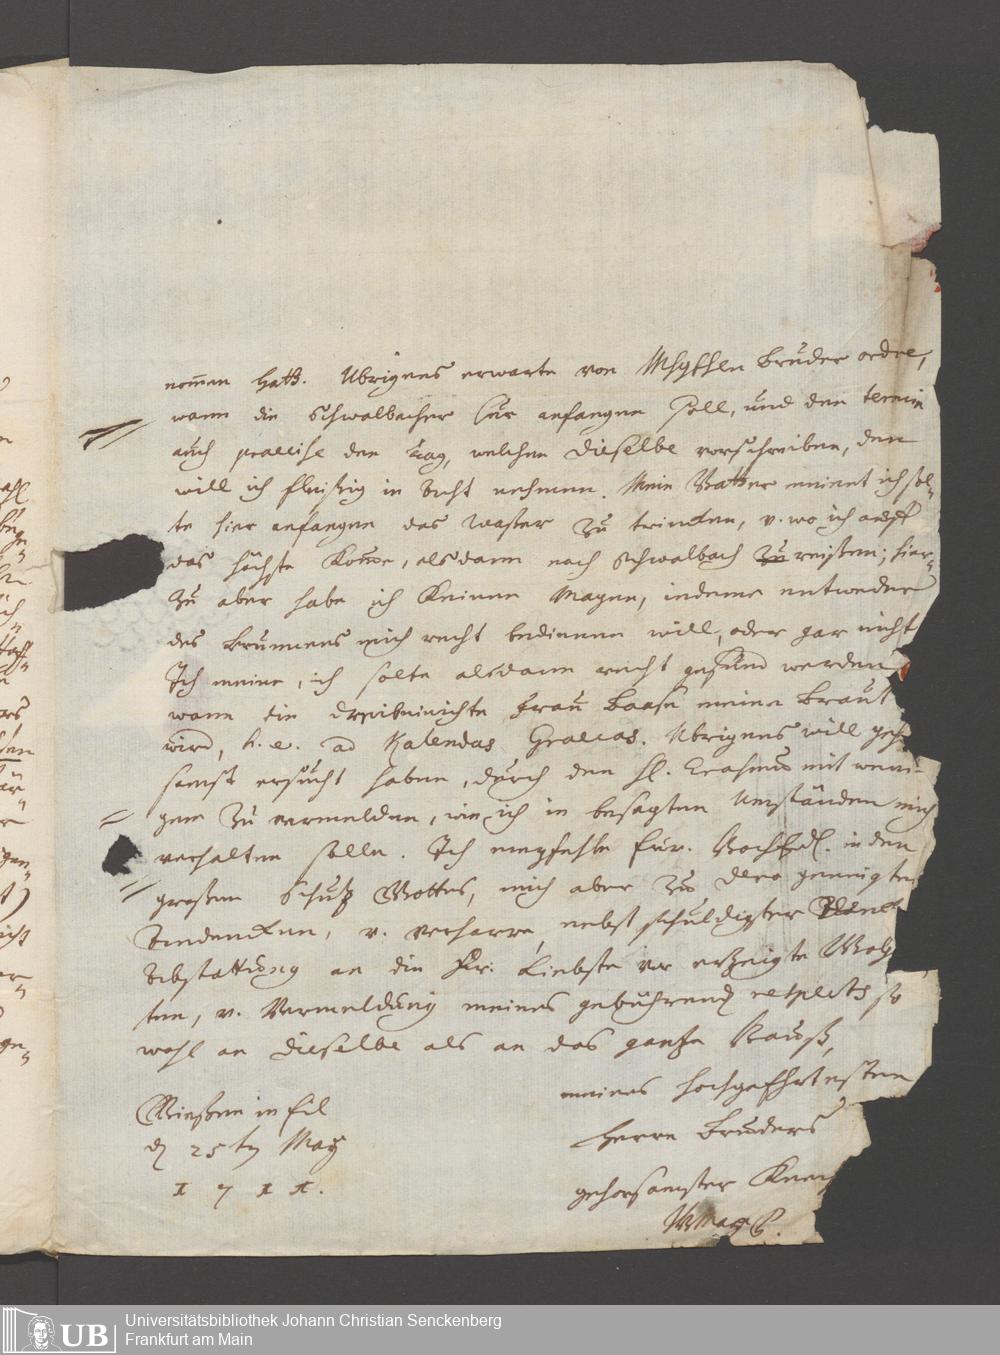 nommen hatt. Ubrigens erwarte von Mhghl Bruder ordre,
wann die Schwalbacher Cur anfangen soll, und den termin
auch praecise den tag, welchen dieselbe vorschreiben, den
will ich fleißig in acht nehmen. Mein Vatter meinet ich sol-
te hier anfangen das Waßer zu trincken, v. wo ich auff
das höchste komme, alsdann nach Schwalbach zu reißen; hier-
zu aber habe ich keinen Magen, indeme entweder
des Brunnens mich recht bedienen will, oder gar nicht
Ich meine, ich solte alsdann recht gesund werden
wann die Frau Baase meine Braut
wird, h. e. ad Kalendas Graecas. Ubrigens will geh
samst ersucht haben, durch den H. Erasmus mit weni-
gem zu vermelden, wie ich in besagten Umständen mich
verhalten solle. Ich empfehle Eur. HochEdl. in den
großen Schutz Gottes, mich aber zu dero geneigten
Andencken, v. verharre, nebst schuldigster
Abstattung an die Fr. Liebste vor erzeigte
ten, v. Vermeldung meines gebührend respects so
wohl an dieselbe als an das gantze Hauß,
meines hochgeehrtesten
Gießen in Eil
Herrn Bruders
d 25ten May
gehorsamster Knech
1 7 1 1.